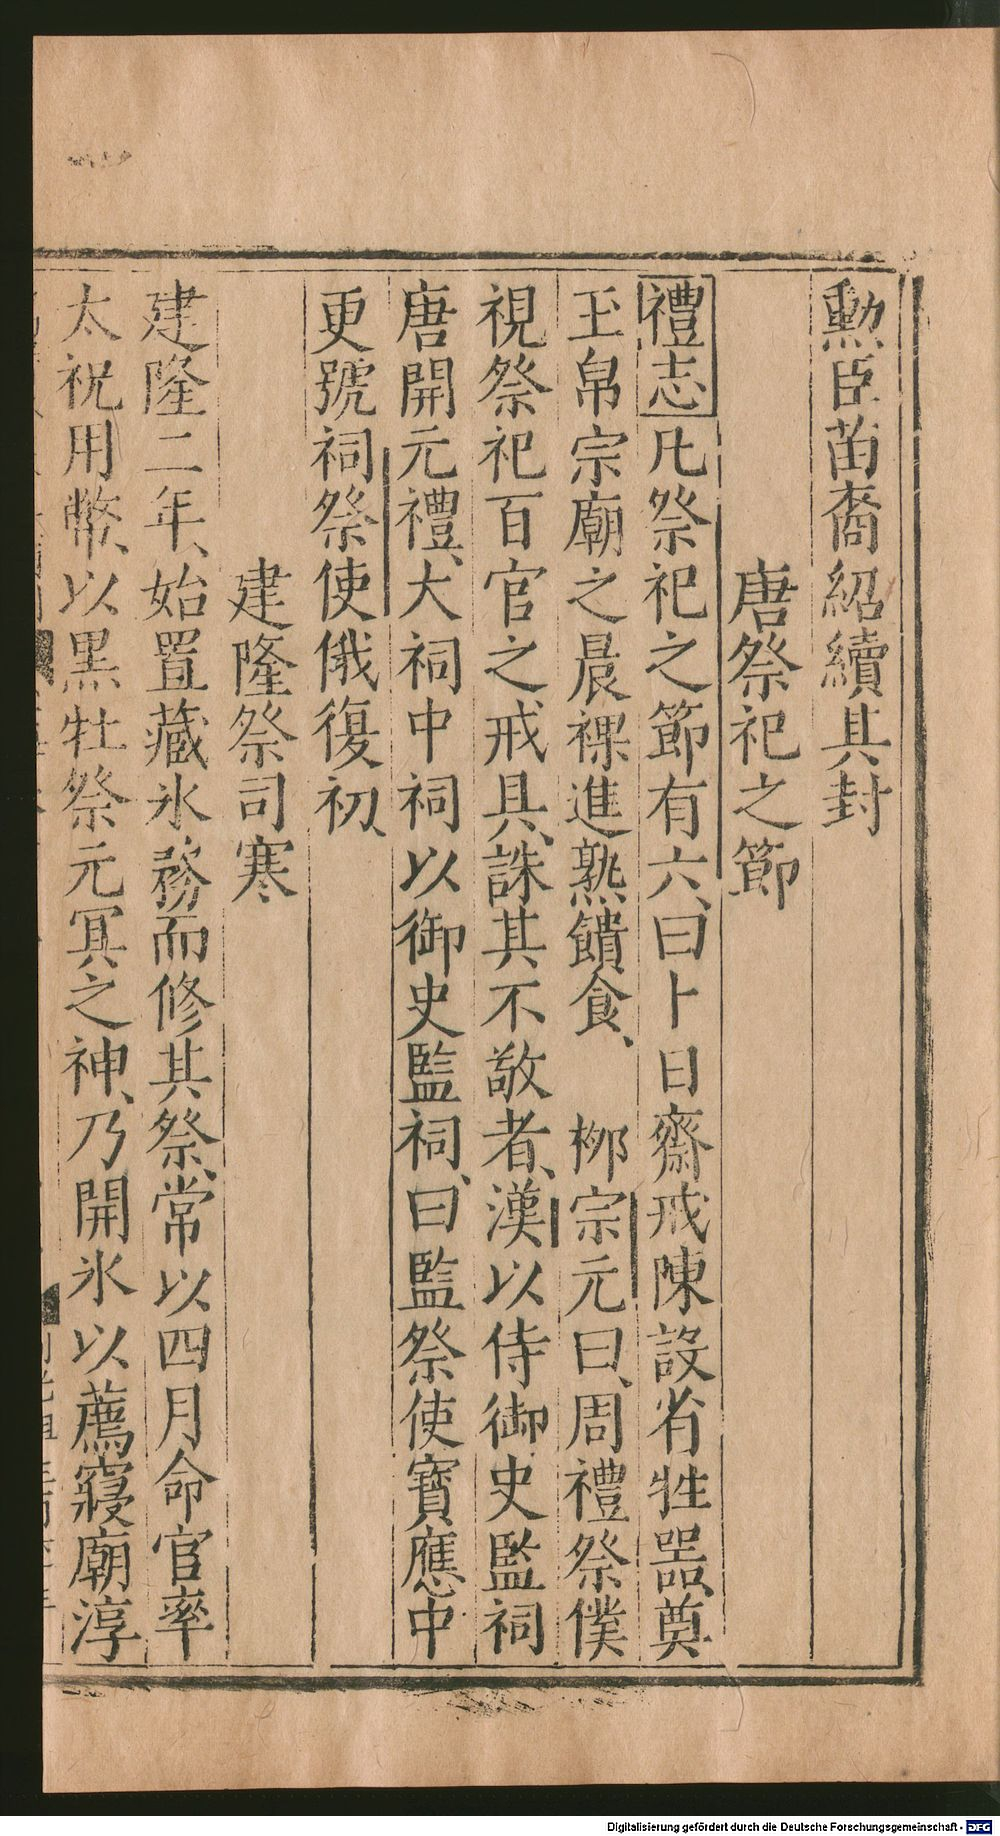 勲臣苗裔紹續其封
唐祭祀之節
禮志凡祭祀之節有六、曰卜日齋戒陳設省牲器、奠
玉帛宗廟之晨祼進熟饋食、 柳宗元曰、周禮祭僕
視祭祀百官之戒具、誅其不敬者、漢以侍御史監祠
唐開元禮、大祠中祠以御史監祠、曰監祭使寶應中
更號祠祭使俄復初、
建隆祭司寒
建隆二年、始置藏氷務而修其祭、常以四月命官率
太祝用幣、以黒牡祭元冥之神、乃開氷以薦寢廟淳
Digitalisierung gefördert durch die Deutsche Forschungsgemeinschaft - DFG